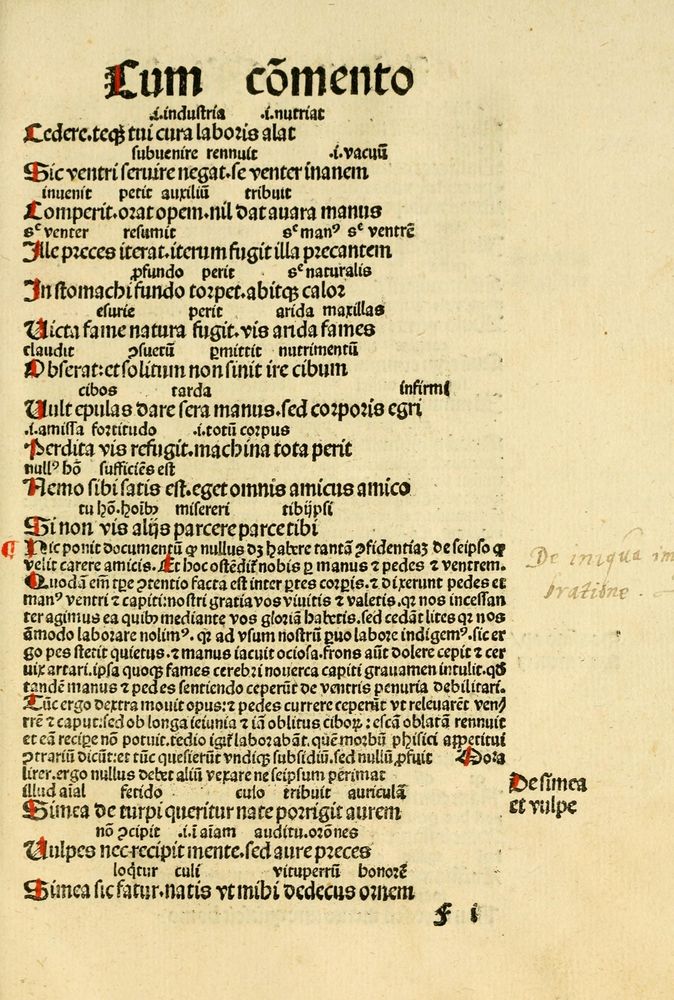 Cum cōmento
.i.industria .i.nutriat
Cedere.teqꝫ tui cura laboris alat
subuenire rennuit .i.vacuū
Sic ventri seruire negat.se venter inanem
inuenit petit auxiliū tribuit
Comperit.orat opem.nil dat auara manus
sᶜ venter resumit sᶜ manꝰ sᶜ ventrē
Ille preces iterat.iterum fugit illa precantem
ꝓfundo perit sᶜ naturalis
In stomachi fundo torpet.abitqꝫ calor
esurie perit arida maxillas
Uicta fame natura fugit.vis arida fames
claudit ꝯsuetū ꝑmittit nutrimentū
Obserat:et solitum non sinit ire cibum
cibos tarda infirmi
Uult epulas dare sera manus.sed corporis egri
.i.amissa fortitudo .i.totū corpus
Perdita vis refugit.machina tota perit
nullꝰ hō sufficiēs est
Nemo sibi satis est.eget omnis amicus amico
tu hō.hoīb⁹ misereri tibiipsi
Si non vis alijs parcere parce tibi
¶ Hic ponit documentū ꝙ nullus dꝫ habere tantā ꝯfidentiaꝫ de seipso ꝙ
velit carere amicis. Et hoc ostēdit̄ nobis ꝑ manus ⁊ pedes ⁊ ventrem.
Quodā em̄ tꝑe ꝯtentio facta est inter ꝑtes corꝑis.⁊ dixerunt pedes et
manꝰ ventri ⁊ capiti:nostri gratia vos viuitis ⁊ valetis.qꝛ nos incessan
ter agimus ea quibꝰ mediante vos gloriā habetis.sed cedāt lites qꝛ nos
āmodo laborare nolimꝰ. qꝛ ad vsum nostrū ꝑuo labore indigemꝰ.sic er
go pes stetit quietus.⁊ manus iacuit ociosa.frons aūt dolere cepit ⁊ cer
uix artari.ipsa quoqꝫ fames cerebri nouerca capiti grauamen intulit.qđ
tandē manus ⁊ pedes sentiendo ceperūt de ventris penuria debilitari.
Tūc ergo dextra mouit opus:⁊ pedes currere ceperūt vt releuarēt ven
trē ⁊ caput:sed ob longa ieiunia ⁊ iā oblitus ciboꝝ:escā oblatam rennuit
et eā recipe nō potuit.tedio igit̄ laborabāt.quē morbū phisici appetitui
ꝯtrariū dicūt:et tūc quesierūt vndiqꝫ subsidiū.sed nullū ꝓfuit Mora
liter.ergo nullus debet aliū vexare ne seipsum perimat
illud aīal fetido culo tribuit auriculā
Simea de turpi queritur nate porrigit aurem
nō ꝯcipit .i.ī aīam auditu.orōnes
Uulpes nec recipit mente.sed aure preces
loqt̄ur culi vituperrū honorē
Simea sic fatur.natis vt mihi dedecus ornem
f i
De iniqua im
De simea
et vulpe